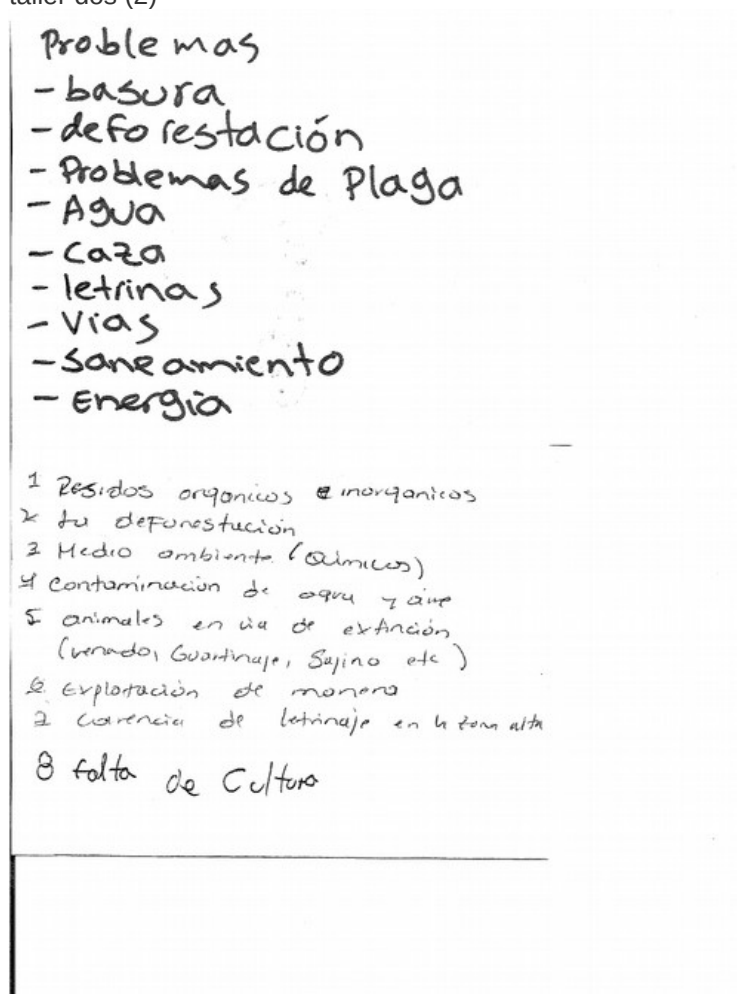 taller dos (2)
Problemas
- basura
- deforestación
- Problemas de Plaga
- Agua
- Caza
- letrinas
- Vias
- Saneamiento
- Energia
1 Residos organicos e inorganicos
2 La deforestación
3 Medio ambiente (Quimicos)
4 Contaminación de agua y aire
5 animales en via de extinción
(venado, Guartinaje, Sajino etc)
6 Explotación de manera
7 Carencia de letrinaje en la zona alta
8 falta de Cultura